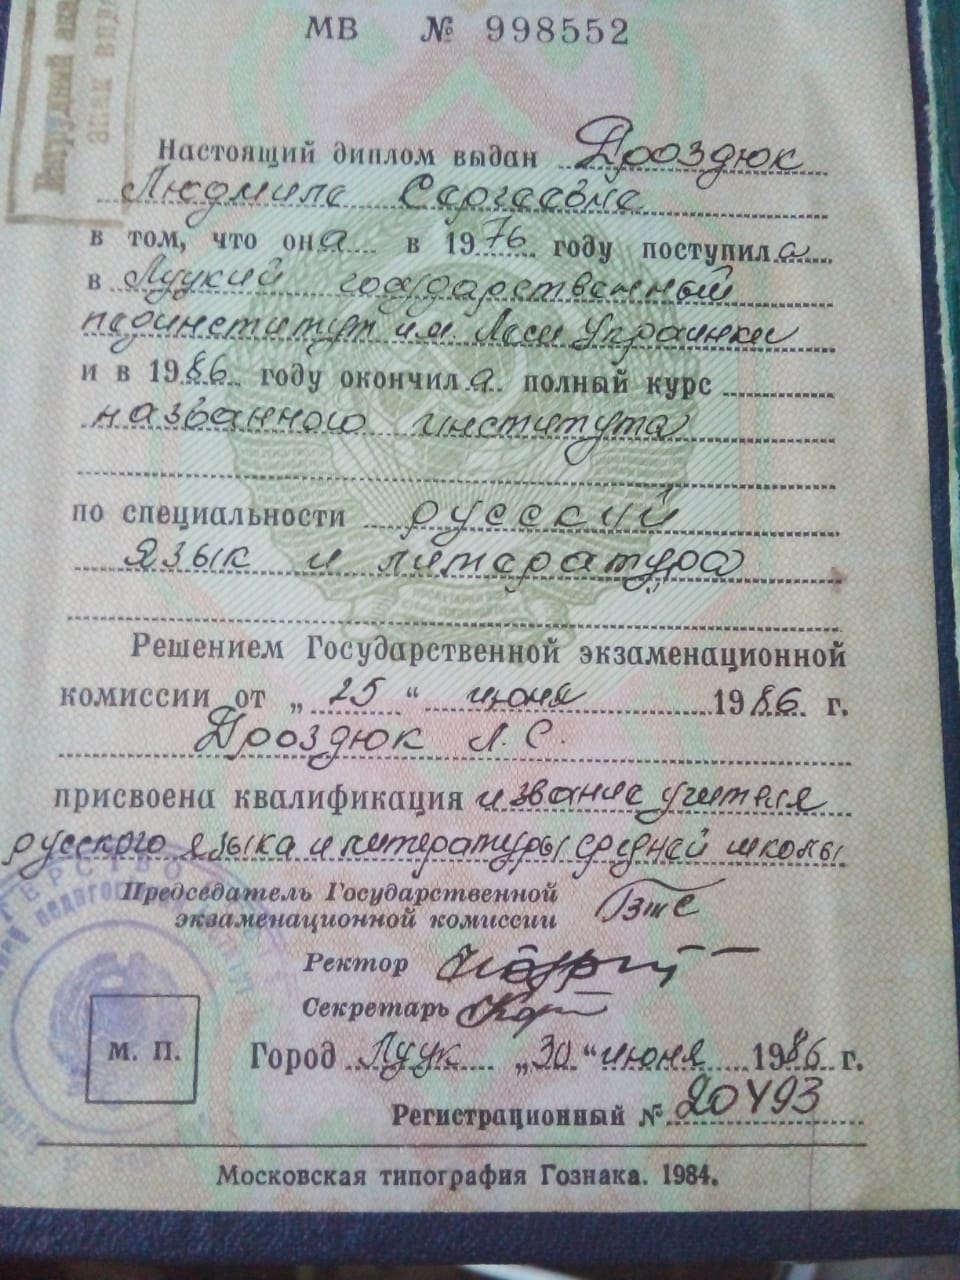 МВ № 998552
Нагрудный ака
знак выда
Настоящий диплом выдан Дроздюк
Людмиле Сергеевне
в том, что она в 1976 году поступила
в Луцкий государственный
пединститут им. Леси Украинки
и в 1986 году окончила полный курс
названного института
по специальности русский
язык и литература
Решением Государственной экзаменационной
комиссии от „25“ июня 1986 г.
Дроздюк Л. С.
присвоена квалификация и звание учителя
русского языка и литературы средней школы
Председатель Государственной
экзаменационной комиссии
Ректор
Секретарь
М. П.
Город Луцк „30“ июня 1986 г.
Регистрационный № 20493
Московская типография Гознака. 1984.